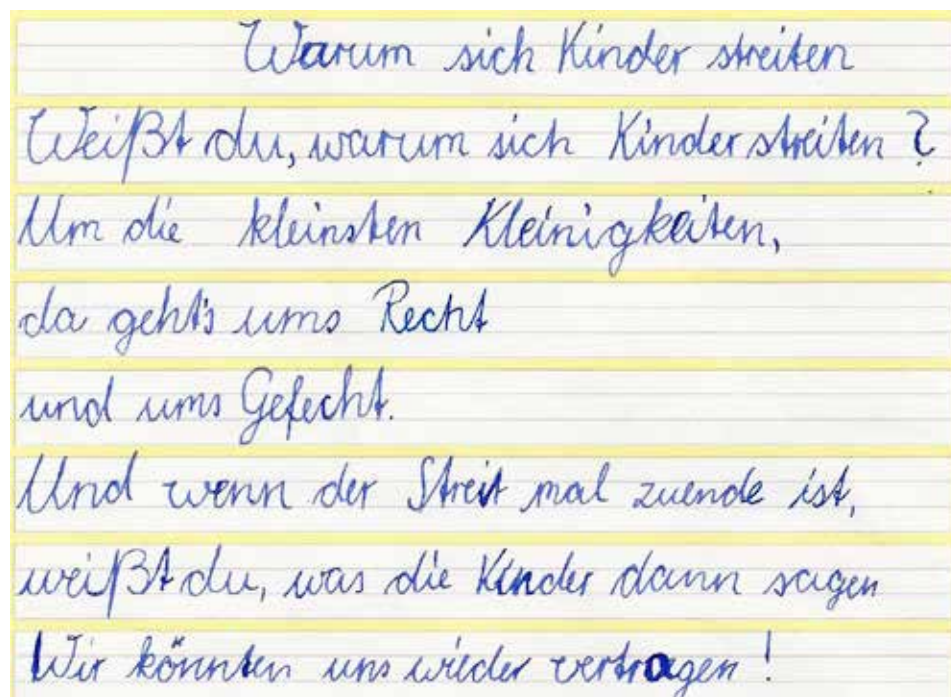 Warum sich Kinder streiten
Weißt du, warum sich Kinder streiten?
Um die kleinsten Kleinigkeiten,
da geht's ums Recht
und ums Gefecht.
Und wenn der Streit mal zuende ist,
weißt du, was die Kinder dann sagen
Wir könnten uns wieder vertragen!